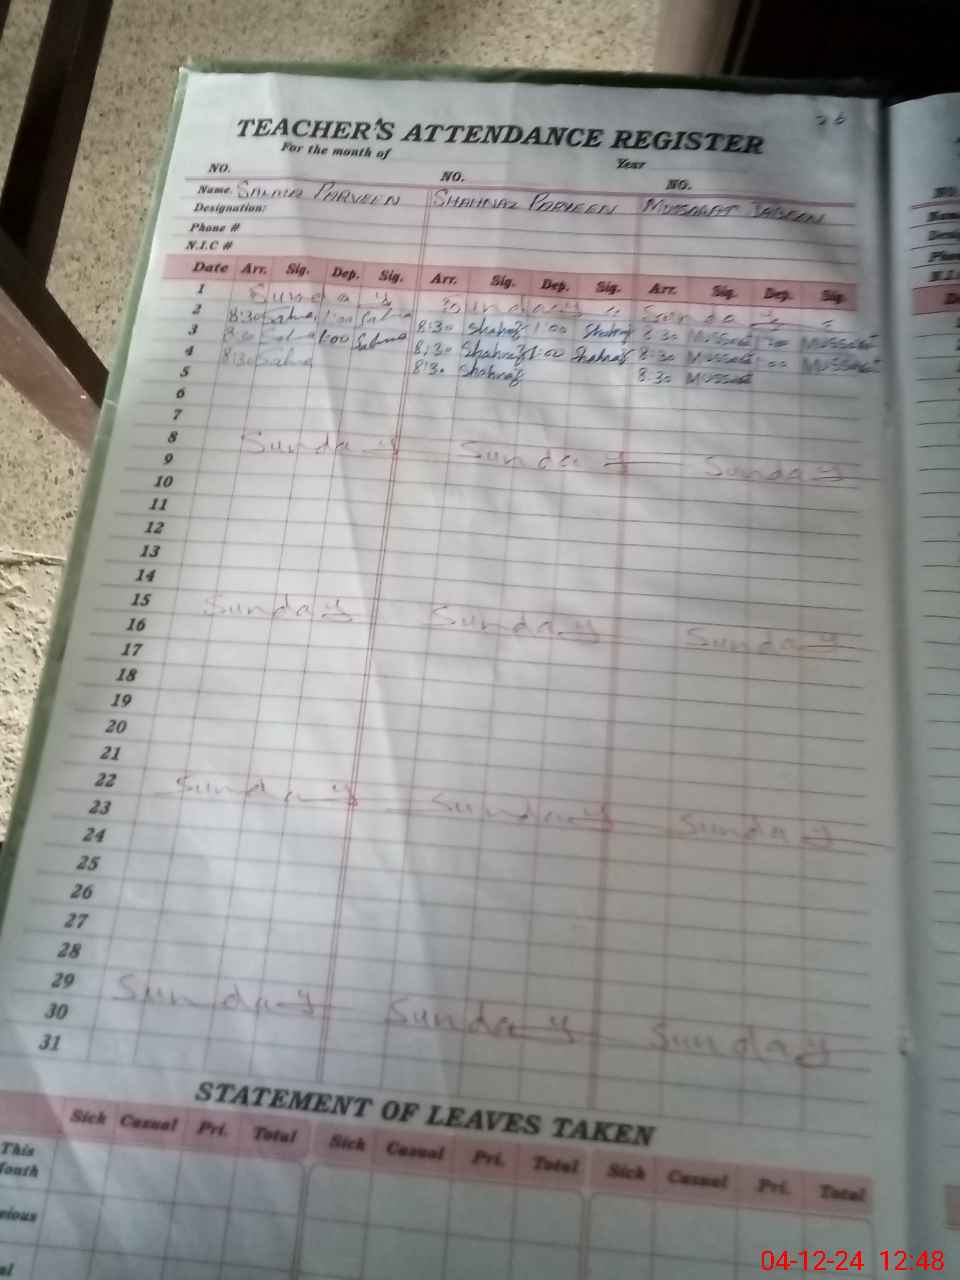 26
TEACHER'S ATTENDANCE REGISTER
For the month of Year
NO. NO. NO.
Name. SALMA PARVEEN SHAHNAZ PARVEEN MUSSARAT JABEEN
Designation:
Phone #
N.I.C #
Date Arr. Sig. Dep. Sig. Arr. Sig. Dep. Sig. Arr. Sig. Dep. Sig.
1 Sunday Sunday Sunday
2 8:30 Salma 1:00 Salma 8:30 Shahnaz 1:00 Shahnaz 8:30 MUSSARAT 1:00 MUSSARAT
3 8:30 Salma 1:00 Salma 8:30 Shahnaz 1:00 Shahnaz 8:30 MUSSARAT 1:00 MUSSARAT
4 8:30 Salma 8:30 Shahnaz 8:30 MUSSARAT
5
6
7
8 Sunday Sunday Sunday
9
10
11
12
13
14
15 Sunday Sunday Sunday
16
17
18
19
20
21
22 Sunday Sunday Sunday
23
24
25
26
27
28
29 Sunday Sunday Sunday
30
31
STATEMENT OF LEAVES TAKEN
Sick Casual Pri. Total Sick Casual Pri. Total Sick Casual Pri. Total
This
04-12-24 12:48